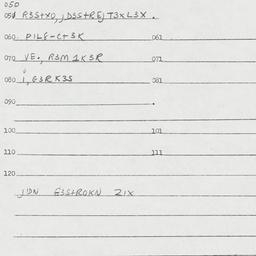 050
051 R3S+XO, jD3S+REj T3XL3X .
060 PILE-C+3K 061
070 VE., R3M 1K3R 071
080 i, G3RK3S 081
090
100 101
110 111
120
j'DN E3S+ROKN ZIX